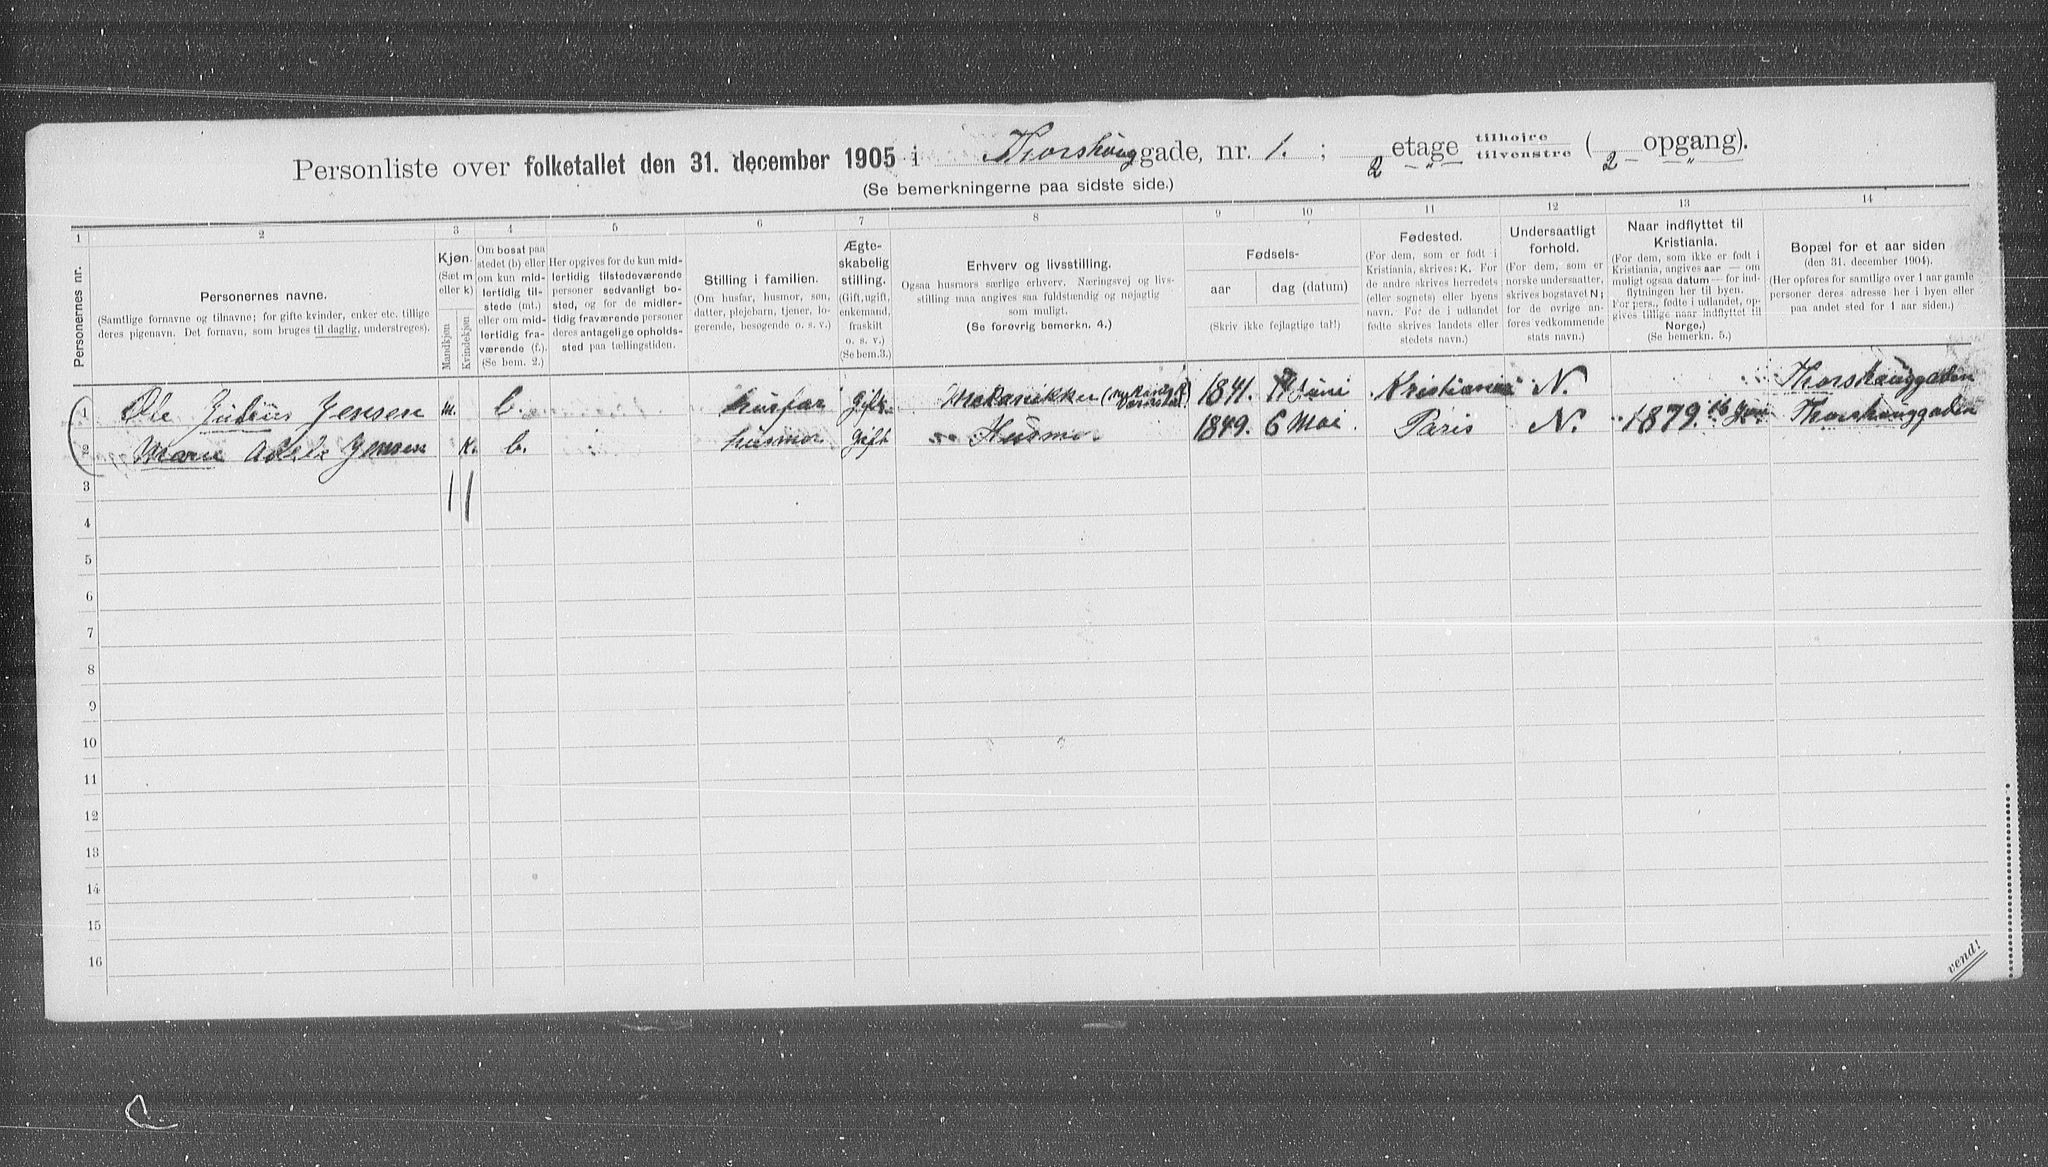 Personliste over folketallet den 31. december 1905 i Thorshauggade, nr. 1. ; 2 etage tilhøire tilvenstre ( 2 opgang).
(Se bemerkningerne paa sidste side.)
1 2 3 4 5 6 7 8 9 10 11 12 13 14
Personernes nr.
Personernes navne.
(Samtlige fornavne og tilnavne; for gifte kvinder, enker etc. tillige
deres pigenavn. Det fornavn, som bruges til daglig, understreges).
Kjøn.
(Sæt m
eller k)
Mandkjøn
Kvindekjøn
Om bosat paa
stedet (b) eller
om kun mid-
lertidig til-
stede (mt.)
eller om mid-
lertidig fra-
værende (f.).
(Se bem. 2.)
Her opgives for de kun mid-
lertidig tilstedeværende
personer sedvanligt bo-
sted, og for de midler-
tidig fraværende personer
deres antagelige opholds-
sted paa tællingstiden.
Stilling i familien.
(Om husfar, husmor, søn,
datter, plejebarn, tjener, lo-
gerende, besøgende o. s. v.)
Ægte-
skabelig
stilling.
(Gift, ugift,
enkemand,
fraskilt
o. s. v.)
(Se bem. 3.)
Erhverv og livsstilling.
Ogsaa husmors særlige erhverv. Næringsvej og livs-
stilling maa angives saa fuldstændig og nøjagtig
som muligt.
(Se forøvrig bemerkn. 4.)
Fødsels-
aar
dag (datum)
(Skriv ikke fejlagtige tal!)
Fødested.
(For dem, som er født i
Kristiania, skrives: K. For
de andre skrives herredets
(eller sognets) eller byens
navn. For de i udlandet
fødte skrives landets eller
stedets navn.)
Undersaatligt
forhold.
(For dem, som er
norske undersaatter,
skrives bogstavet N;
for de øvrige an-
føres vedkommende
stats navn.)
Naar indflyttet til
Kristiania.
(For dem, som ikke er født i
Kristiania, angives aar — om
muligt ogsaa datum — for ind-
flytningen her til byen.
For pers., fødte i udlandet, op-
gives tillige naar indflyttet til
Norge.)
(Se bemerkn. 5.)
Bopæl for et aar siden
(den 31. december 1904).
(Her opføres for samtlige over 1 aar gamle
personer deres adresse her i byen eller
paa andet sted for 1 aar siden.)
1 Ole Julius Jensen m. b. husfar gift Mekanikker 1841. Juni Kristiania N. Thorshauggaden
2 Marie Adele Jensen k. b. husmor gift Husmor 1849. 6 Mai Paris N. 1879. Thorshauggaden
3
4
5
6
7
8
9
10
11
12
13
14
15
16
vend!